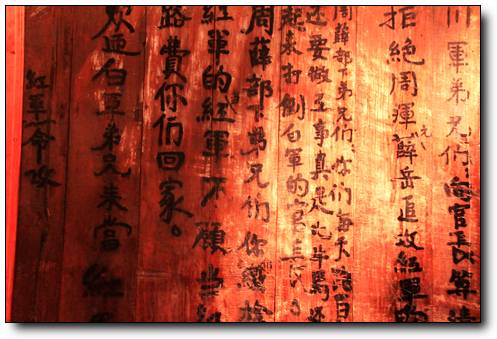 川軍弟兄們：向官長算清
拒絕周渾薛岳追攻紅軍
周薛部下弟兄們：你們每天跑
還要做工事真是比牛馬
起來打倒白軍的官長。
周薛部下弟兄們你
紅軍的紅軍不願當紅
路費你們回家。
欢迎白軍弟兄来當紅
紅軍一